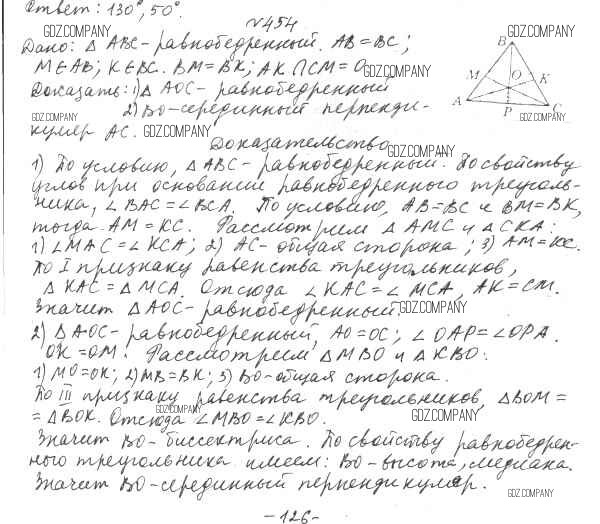 Ответ: 130°, 50°.
№454
GDZ.COMPANY
Дано: △ ABC - равнобедренный. AB=BC;
M∈AB; K∈BC. BM=BK; AK∩CM=O
GDZ.COMPANY
Доказать: 1) △ AOC - равнобедренный
2) BO-серединный перпенди-
GDZ.COMPANY
куляр AC. GDZ.COMPANY
B
GDZ.COMPANY
M
O
K
A
P
C
GDZ.COMPANY
Доказательство
GDZ.COMPANY
1) По условию, △ABC - равнобедренный. По свойству
углов при основании равнобедренного треуголь-
ника, ∠BAC=∠BCA. По условию, AB=BC и BM=BK,
тогда AM=KC. Рассмотрим △AMC и △CKA:
1) ∠MAC=∠KCA; 2) AC-общая сторона; 3) AM=KC.
По I признаку равенства треугольников,
△KAC=△MCA. Отсюда ∠KAC=∠MCA, AK=CM.
Значит △AOC-равнобедренный.
GDZ.COMPANY
2) △AOC-равнобедренный, AO=OC; ∠OAP=∠OPA.
OK=OM. Рассмотрим △MBO и △KBO:
1) MO=OK; 2) MB=BK; 3) BO-общая сторона.
По III признаку равенства треугольников, △BOM=
GDZ.COMPANY
=△BOK. Отсюда ∠MBO=∠KBO.
GDZ.COMPANY
Значит BO-биссектриса. По свойству равнобедрен-
ного треугольника имеем: BO-высота, медиана.
GDZ.COMPANY
Значит BO-серединный перпендикуляр.
GDZ.COMPANY
-126-